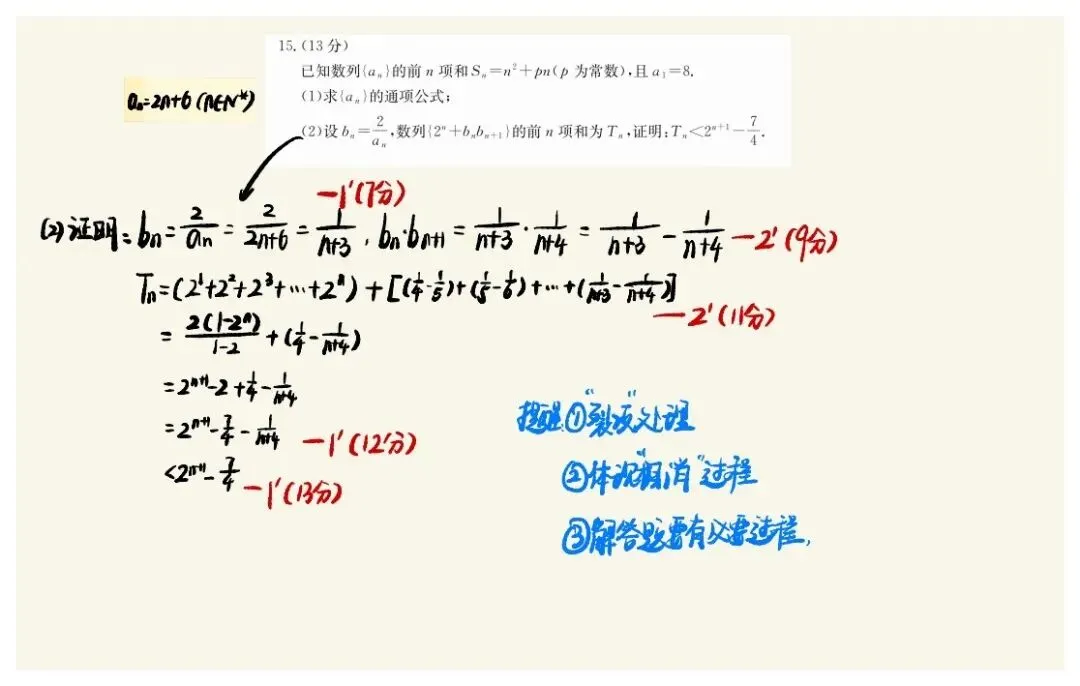 15.(13分)
已知数列{aₙ}的前 n 项和 Sₙ=n²+pn(p 为常数),且 a₁=8.
aₙ=2n+6 (n∈N*)
(1)求{aₙ}的通项公式;
(2)设 bₙ=2/aₙ,数列{2ⁿ+bₙbₙ₊₁}的前 n 项和为 Tₙ,证明:Tₙ<2ⁿ⁺¹-7/4.
—1′(7分)
(2)证明: bₙ=2/aₙ=2/(2n+6)=1/(n+3), bₙ·bₙ₊₁=1/(n+3)·1/(n+4)=1/(n+3)-1/(n+4) —2′(9分)
Tₙ=(2¹+2²+2³+…+2ⁿ)+[(1/4-1/5)+(1/5-1/6)+…+(1/(n+3)-1/(n+4))]
—2′(11分)
=2(1-2ⁿ)/(1-2)+(1/4-1/(n+4))
=2ⁿ⁺¹-2+1/4-1/(n+4)
=2ⁿ⁺¹-7/4-1/(n+4) —1′(12分)
<2ⁿ⁺¹-7/4 —1′(13分)
提醒①"裂项"处理
②体现"抵消"过程
③解答题要有必要过程,